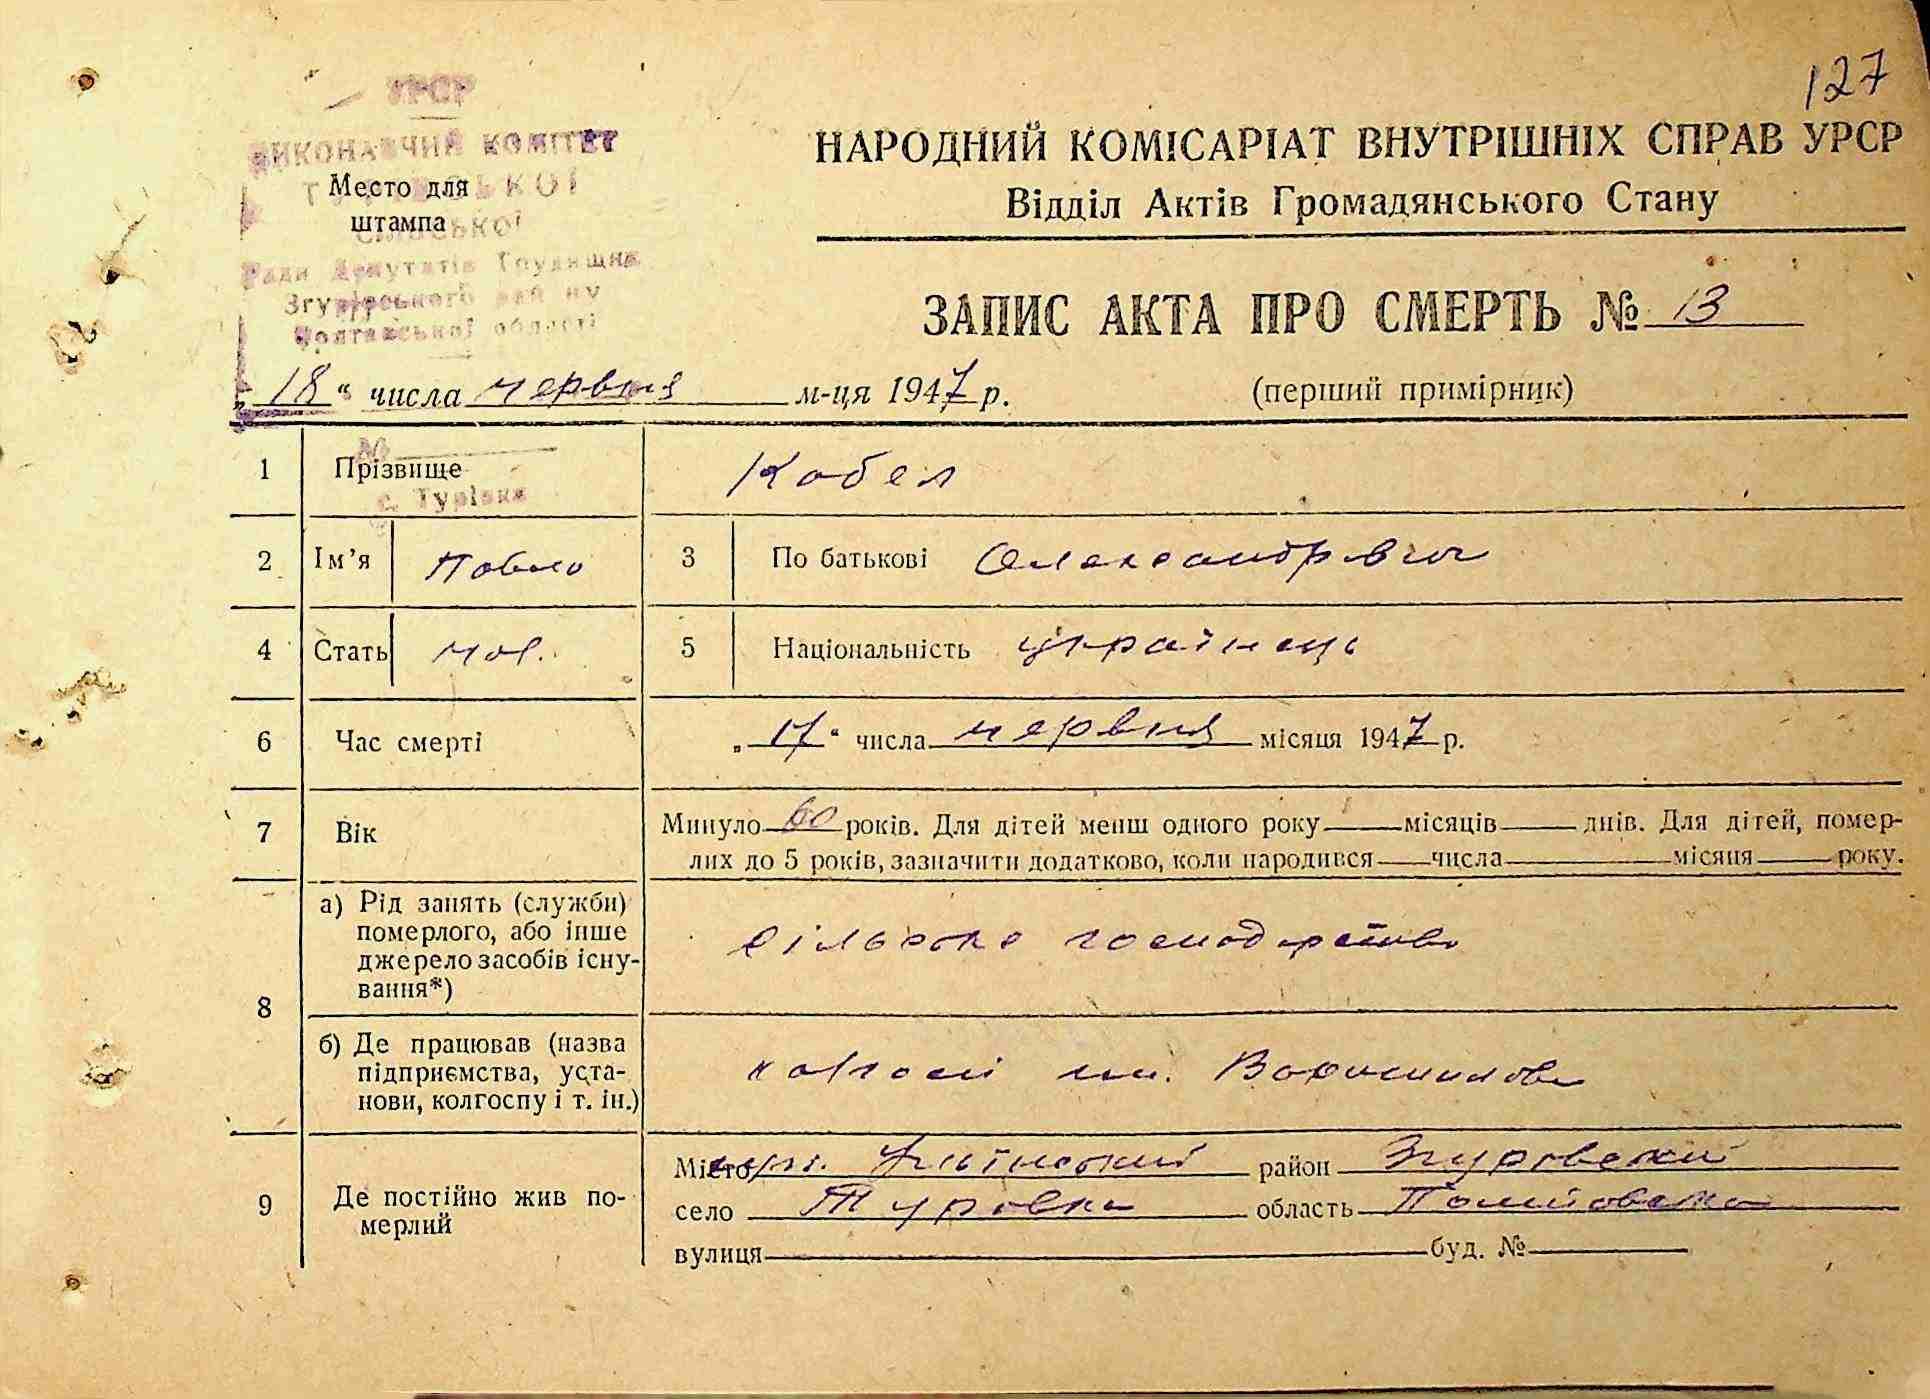 127
УРСР
ВИКОНАВЧИЙ КОМІТЕТ
ТУРІВСЬКОЇ
СІЛЬСЬКОЇ
Ради Депутатів Трудящих
Згурівського району
Полтавської області
№
с. Турівка
Место для
штампа
НАРОДНИЙ КОМІСАРІАТ ВНУТРІШНІХ СПРАВ УРСР
Відділ Актів Громадянського Стану
ЗАПИС АКТА ПРО СМЕРТЬ № 13
„18“ числа червня м-ця 1947 р.
(перший примірник)
1 Прізвище Кобел
2 Ім’я Павло 3 По батькові Олександрович
4 Стать чол. 5 Національність українець
6 Час смерті „17“ числа червня місяця 1947 р.
7 Вік Минуло 60 років. Для дітей менш одного року місяців днів. Для дітей, помер-
лих до 5 років, зазначити додатково, коли народився числа місяця року.
8 а) Рід занять (служби)
померлого, або інше
джерело засобів існу-
вання*)
сільське господарство
б) Де працював (назва
підприємства, уста-
нови, колгоспу і т. ін.)
колгосп ім. Ворошилова
9 Де постійно жив по-
мерлий
Місто район Згуровский
село Туровка область Полтавска
вулиця буд. №